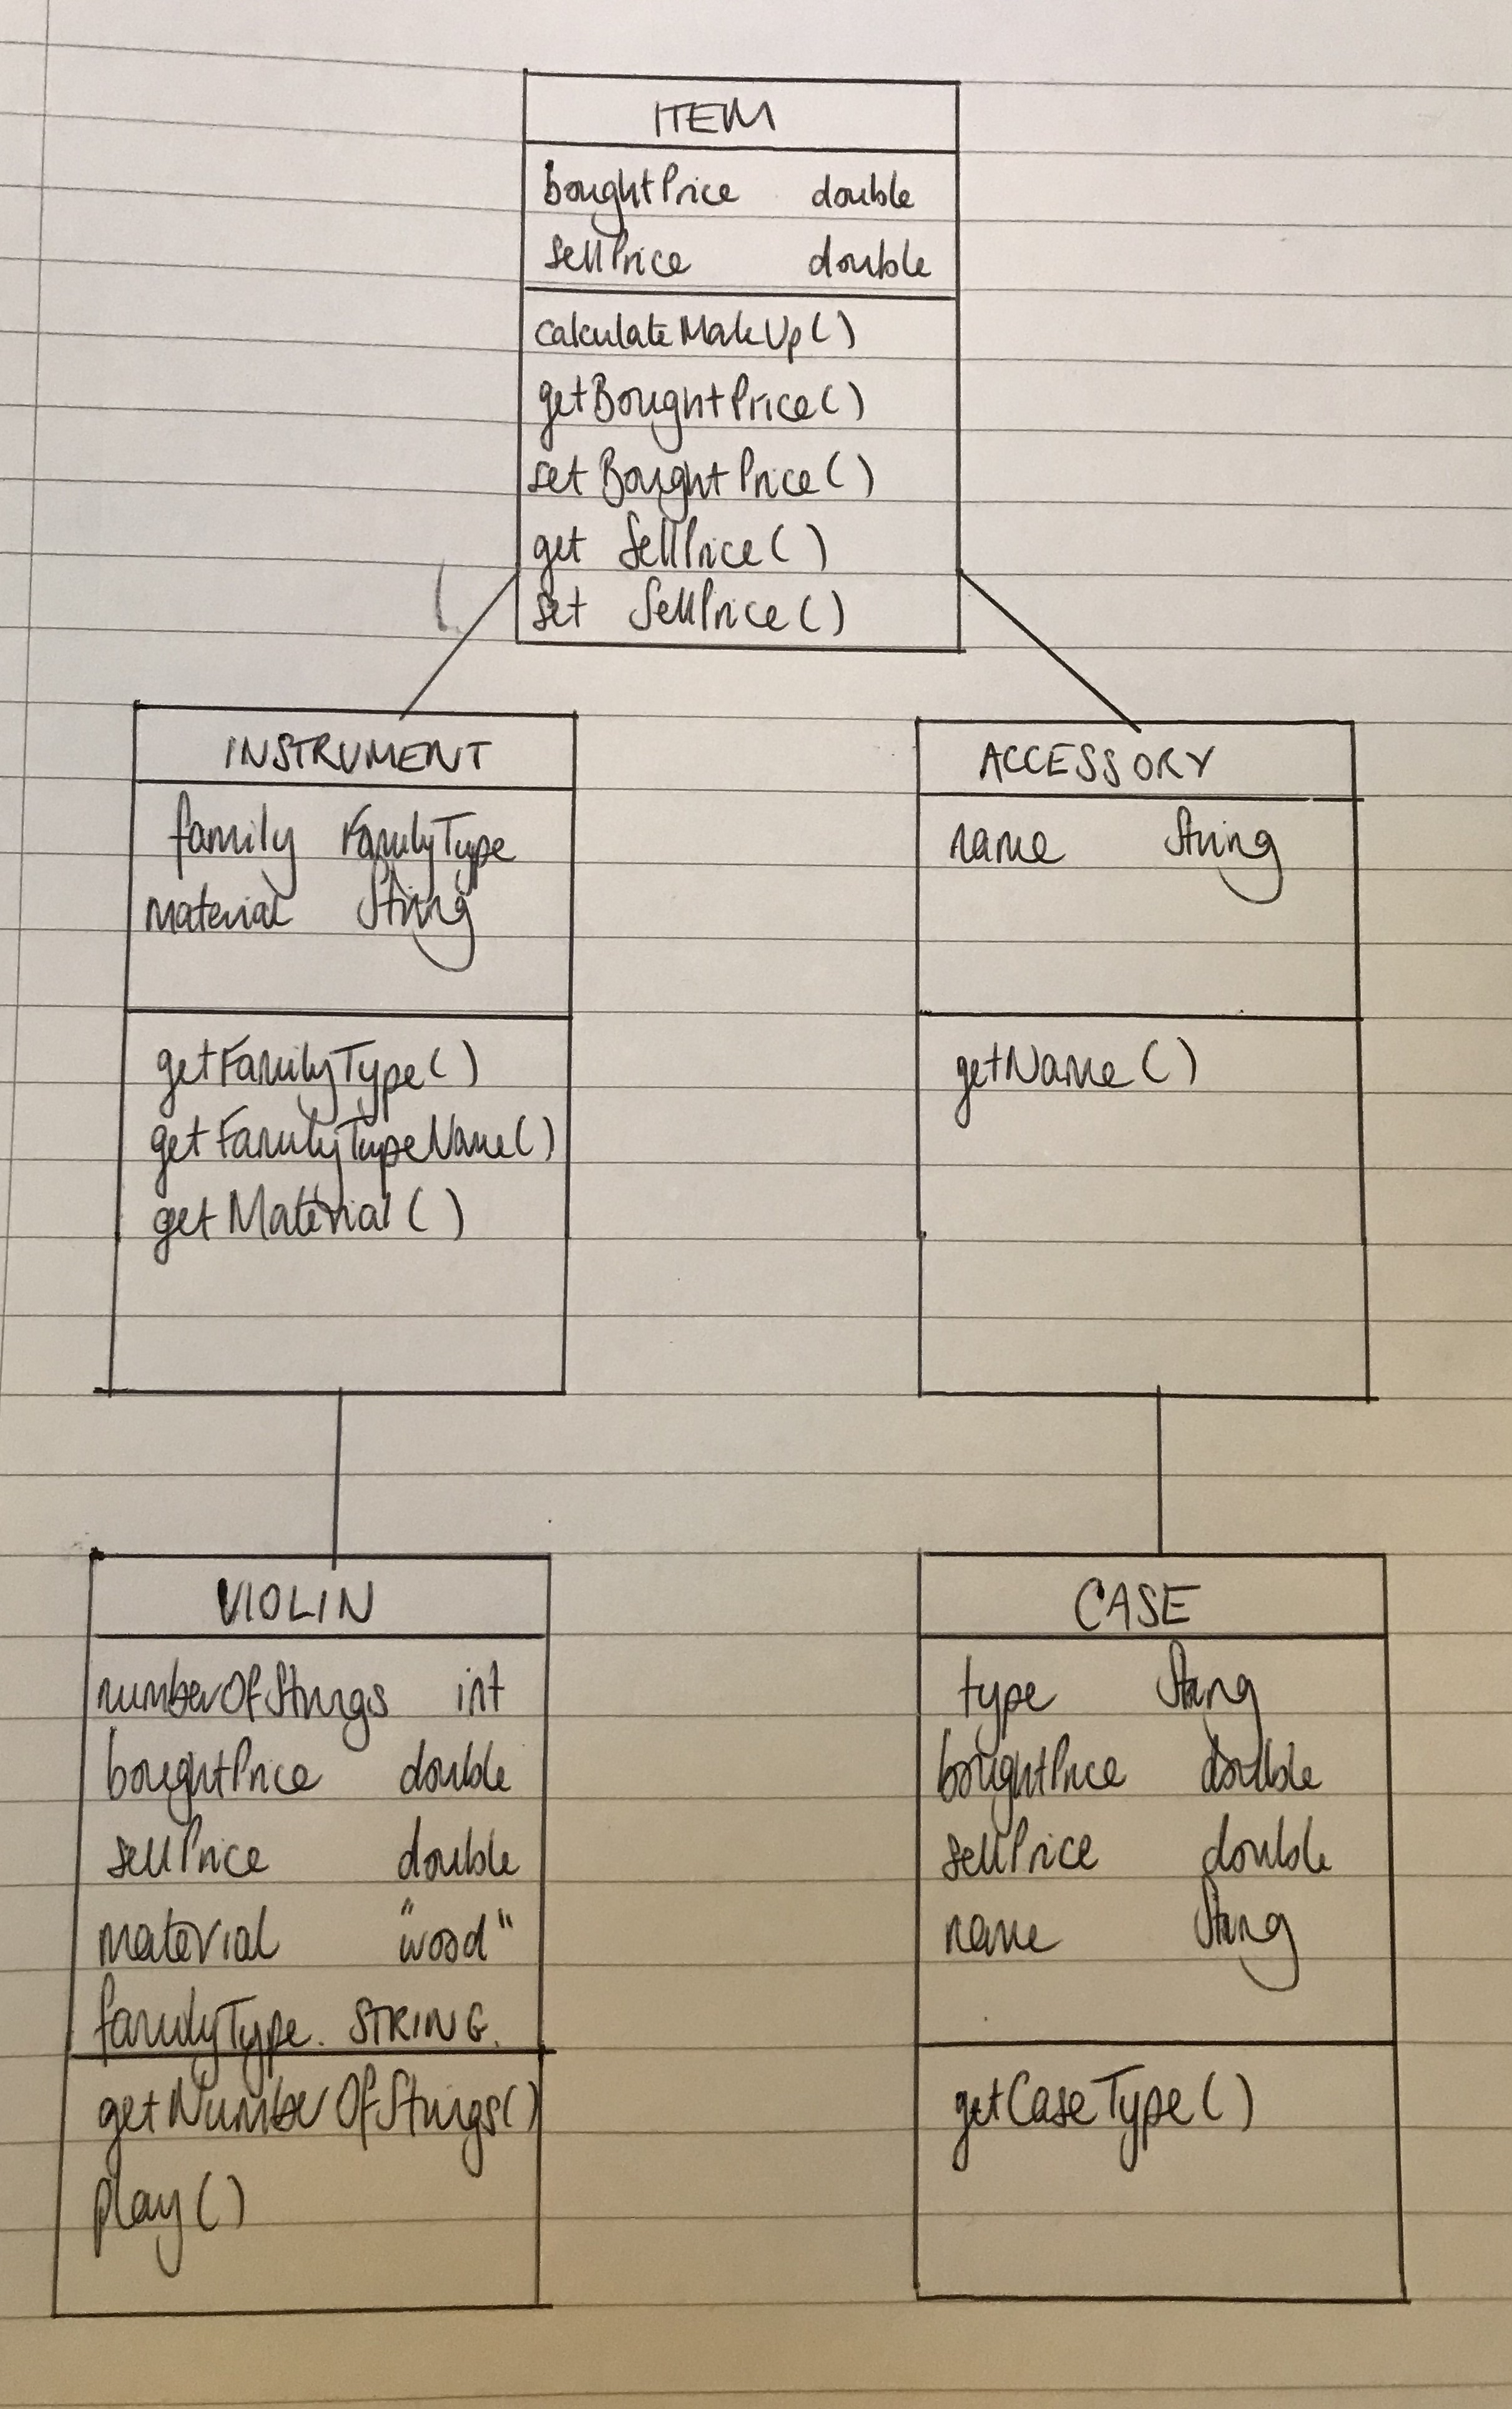 ITEM
boughtPrice double
sellPrice double
calculateMarkUp()
getBoughtPrice()
setBoughtPrice()
get SellPrice()
set SellPrice()
INSTRUMENT
family FamilyType
material String
getFamilyType()
getFamilyTypeName()
getMaterial()
ACCESSORY
name String
getName()
VIOLIN
numberOfStrings int
boughtPrice double
sellPrice double
material "wood"
familyType. STRING.
getNumberOfStrings()
play()
CASE
type String
boughtPrice double
sellPrice double
name String
getCaseType()